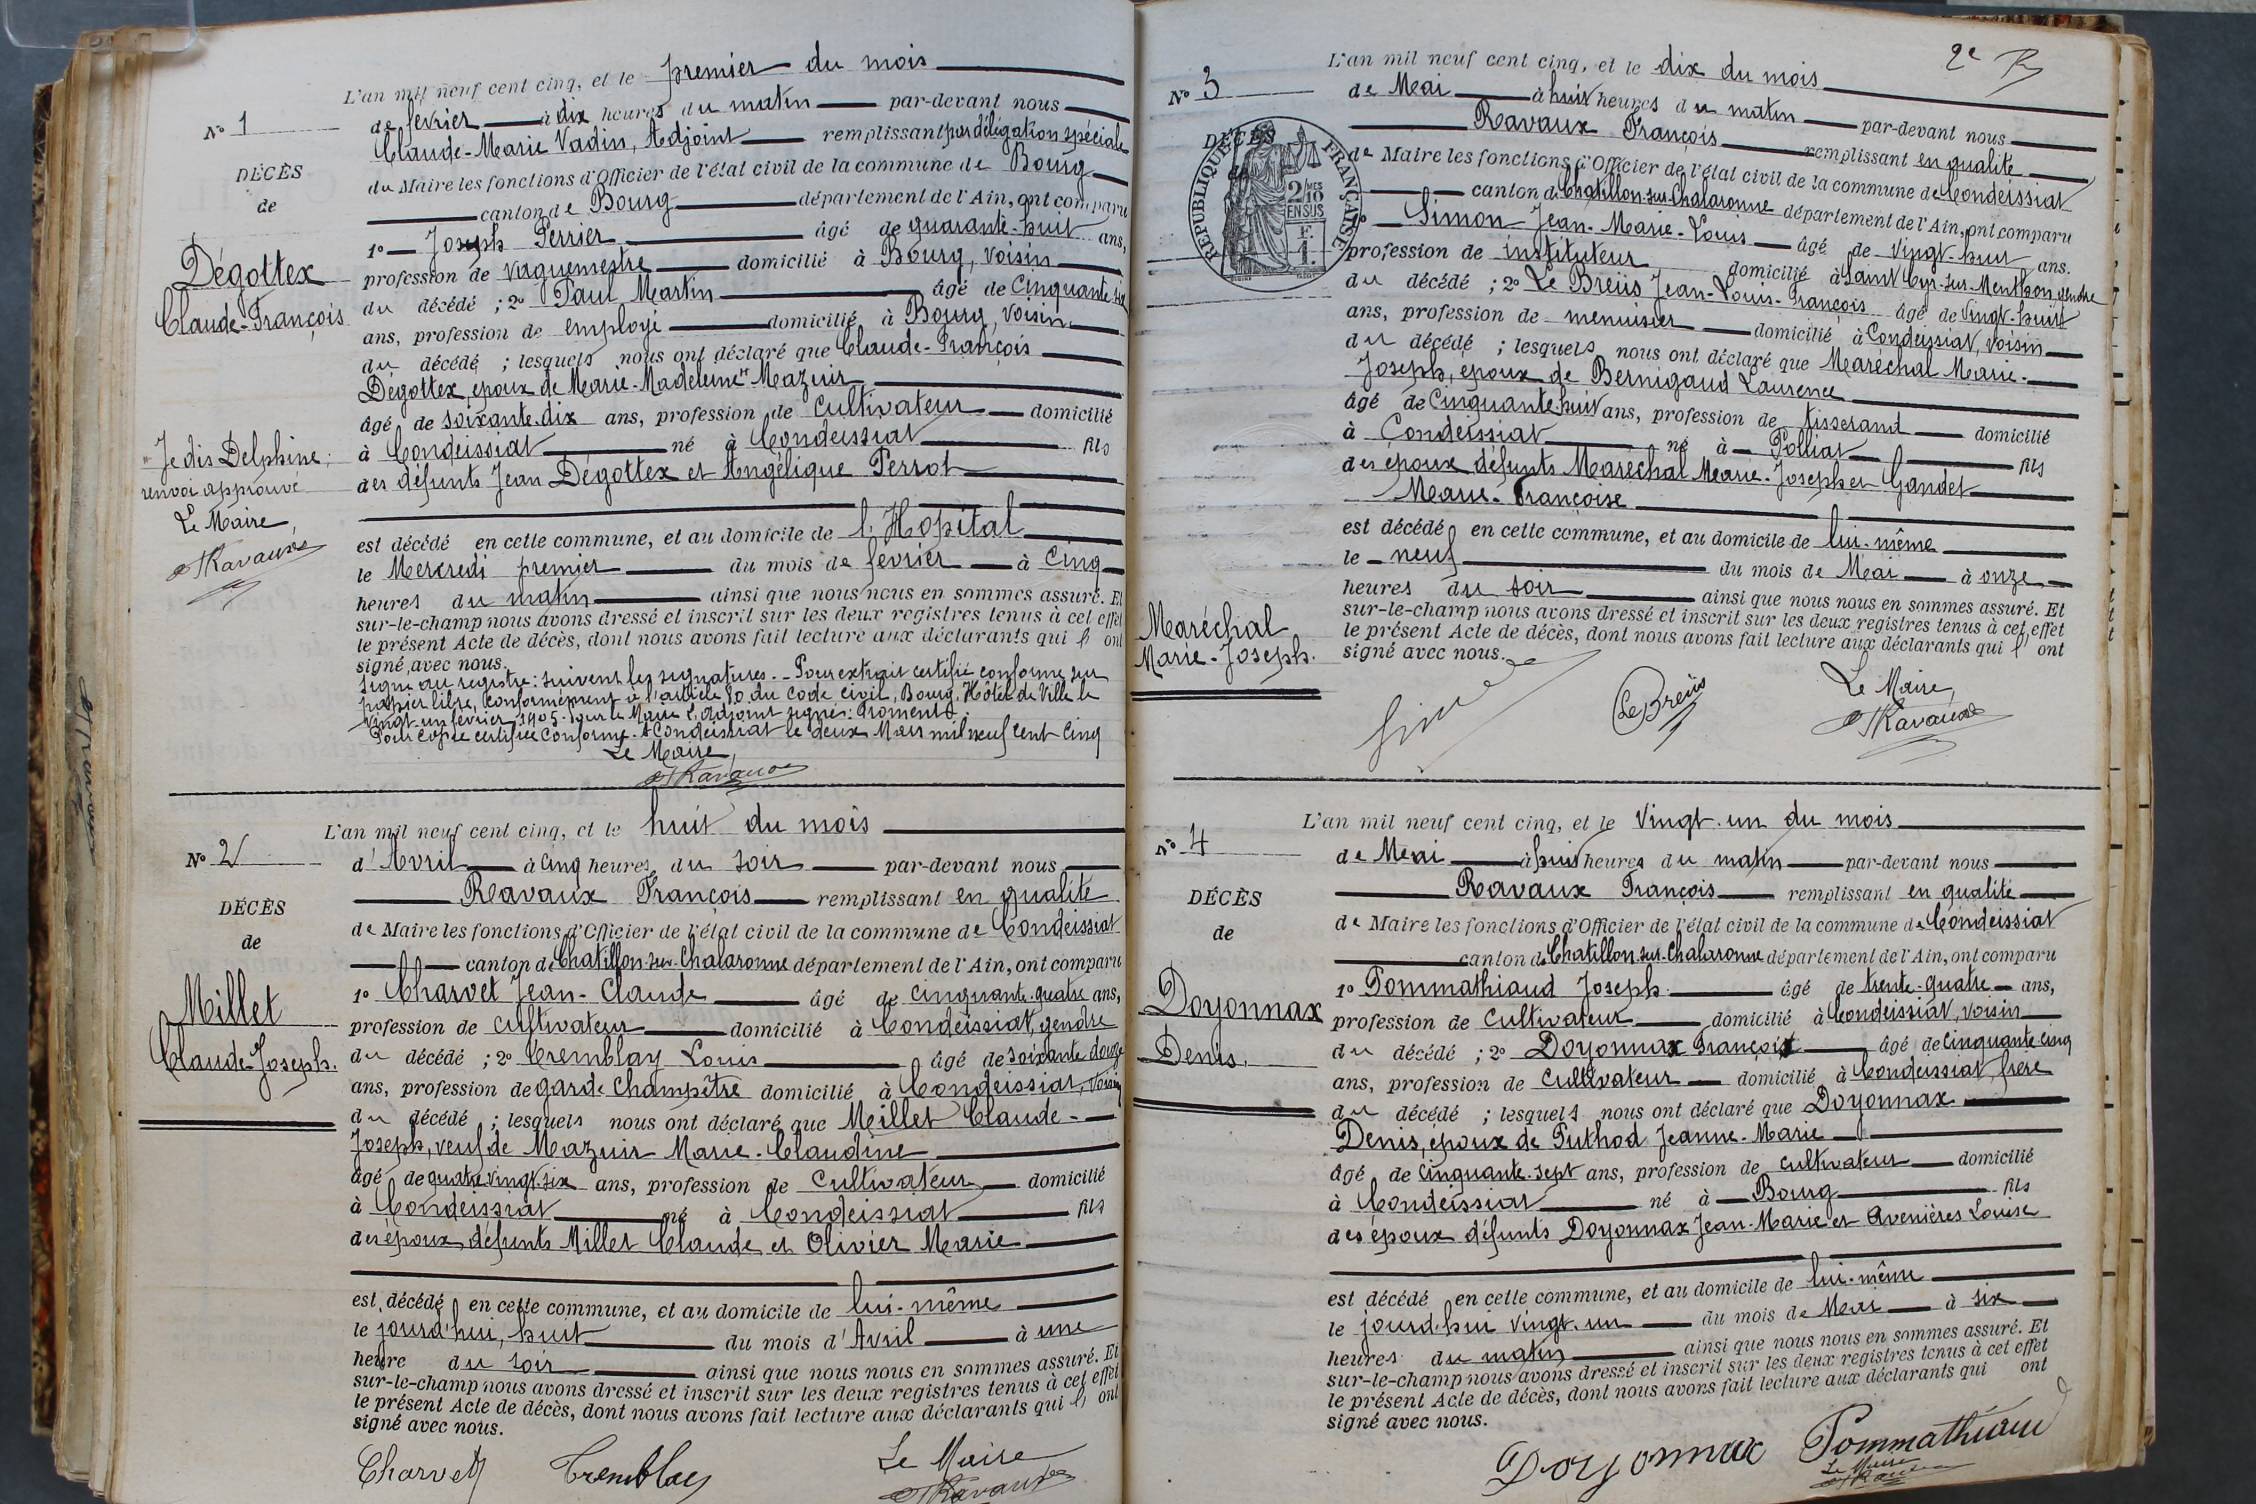 L'an mil neuf cent cinq, et le premier du mois
N° 1
de février à dix heures du matin par-devant nous
Claude-Marie Vadin, Adjoint remplissant par délégation spéciale
DÉCÈS
du Maire les fonctions d'Officier de l'état civil de la commune de Bourg
de
canton de Bourg département de l'Ain, ont comparu
1° Joseph Perrier âgé de quarante-huit ans,
Dégottex
profession de vaguemestre domicilié à Bourg, voisin
Claude-François
du décédé ; 2° Paul Martin âgé de Cinquante six
ans, profession de employé domicilié à Bourg, voisin
du décédé ; lesquels nous ont déclaré que Claude-François
Dégottex, époux de Marie-Madeleine" Mazuir
âgé de soixante-dix ans, profession de Cultivateur domicilié
" Je dis Delphine;
à Condeissiat né à Condeissiat fils
renvoi approuvé
des défunts Jean Dégottex et Angélique Perrot
Le Maire,
Ravaux
est décédé en cette commune, et au domicile de l'Hopital
le Mercredi premier du mois de février à Cinq
heures du matin ainsi que nous nous en sommes assuré. Et
sur-le-champ nous avons dressé et inscrit sur les deux registres tenus à cet effet
le présent Acte de décès, dont nous avons fait lecture aux déclarants qui l' ont
signé avec nous.
signé au registre: suivent les signatures. - Pour extrait certifié conforme sur
papier libre, Conformément à l'article 80 du Code civil, Bourg, Hôtel de Ville le
vingt-un février 1905. Pour le Maire l'adjoint signé:
Pour copie certifiée conforme. A Condeissiat le deux Mars mil neuf cent cinq
Le Maire,
Ravaux
L'an mil neuf cent cinq, et le huit du mois
N° 2
d'Avril à Cinq heures du soir par-devant nous
Ravaux François remplissant en qualité
DÉCÈS
de Maire les fonctions d'Officier de l'état civil de la commune de Condeissiat
de
canton de Chatillon-sur-Chalaronne département de l'Ain, ont comparu
Millet
1° Charvet Jean-Claude âgé de Cinquante-quatre ans,
profession de cultivateur domicilié à Condeissiat, gendre
Claude-Joseph.
du décédé ; 2° Tremblay Louis âgé de soixante douze
ans, profession de garde champêtre domicilié à Condeissiat, voisin
du décédé ; lesquels nous ont déclaré que Millet Claude-
Joseph, veuf de Mazuir Marie-Claudine
âgé de quatre-vingt-six ans, profession de Cultivateur domicilié
à Condeissiat né à Condeissiat fils
des époux défunts Millet Claude et Olivier Marie
est décédé en cette commune, et au domicile de lui-même
le jourd'hui, huit du mois d'Avril à une
heure du soir ainsi que nous nous en sommes assuré. Et
sur-le-champ nous avons dressé et inscrit sur les deux registres tenus à cet effet
le présent Acte de décès, dont nous avons fait lecture aux déclarants qui l' ont
signé avec nous.
Charvet Tremblay Le Maire
Ravaux
2e
L'an mil neuf cent cinq, et le dix du mois
N° 3
de Mai à huit heures du matin par-devant nous
Ravaux François remplissant en qualité
DÉCÈS
RÉPUBLIQUE FRANÇAISE
de Maire les fonctions d'Officier de l'état civil de la commune de Condeissiat
canton de Chatillon-sur-Chalaronne département de l'Ain, ont comparu
2/10 MES
EN SUS
1° Simon Jean-Marie-Louis âgé de vingt-huit ans.
profession de instituteur domicilié à Saint Cyr-sur-Menthon, gendre
du décédé ; 2° Le Breüs Jean-Louis-François âgé de Vingt-huit
ans, profession de menuisier domicilié à Condeissiat, voisin
du décédé ; lesquels nous ont déclaré que Maréchal Marie-
Joseph, époux de Bernigaud Laurence
âgé de Cinquante-huit ans, profession de tisserand domicilié
à Condeissiat né à Polliat fils
des époux défunts Maréchal Marie-Joseph et Gandet
Marie-Françoise
est décédé en cette commune, et au domicile de lui-même
le neuf du mois de Mai à onze
heures du soir ainsi que nous nous en sommes assuré. Et
sur-le-champ nous avons dressé et inscrit sur les deux registres tenus à cet effet
Maréchal
Marie-Joseph.
le présent Acte de décès, dont nous avons fait lecture aux déclarants qui l' ont
signé avec nous.
Le Breüs Le Maire,
Ravaux
L'an mil neuf cent cinq, et le Vingt-un du mois
N° 4
de Mai à huit heures du matin par-devant nous
Ravaux François remplissant en qualité
DÉCÈS
de Maire les fonctions d'Officier de l'état civil de la commune de Condeissiat
de
canton de Chatillon-sur-Chalaronne département de l'Ain, ont comparu
Doyonnax
1° Pommathiaud Joseph âgé de trente-quatre ans,
profession de Cultivateur domicilié à Condeissiat, voisin
Denis.
du décédé ; 2° Doyonnax François âgé de Cinquante-Cinq
ans, profession de Cultivateur domicilié à Condeissiat, frère
du décédé ; lesquels nous ont déclaré que Doyonnax
Denis, époux de Puthod Jeanne-Marie
âgé de Cinquante-sept ans, profession de cultivateur domicilié
à Condeissiat né à Bourg fils
des époux défunts Doyonnax Jean-Marie et Avenières Louise
est décédé en cette commune, et au domicile de lui-même
le jourd'hui vingt-un du mois de Mai à six
heures du matin ainsi que nous nous en sommes assuré. Et
sur-le-champ nous avons dressé et inscrit sur les deux registres tenus à cet effet
le présent Acte de décès, dont nous avons fait lecture aux déclarants qui ont
signé avec nous.
Doyonnax Pommathiaud
Le Maire
Ravaux